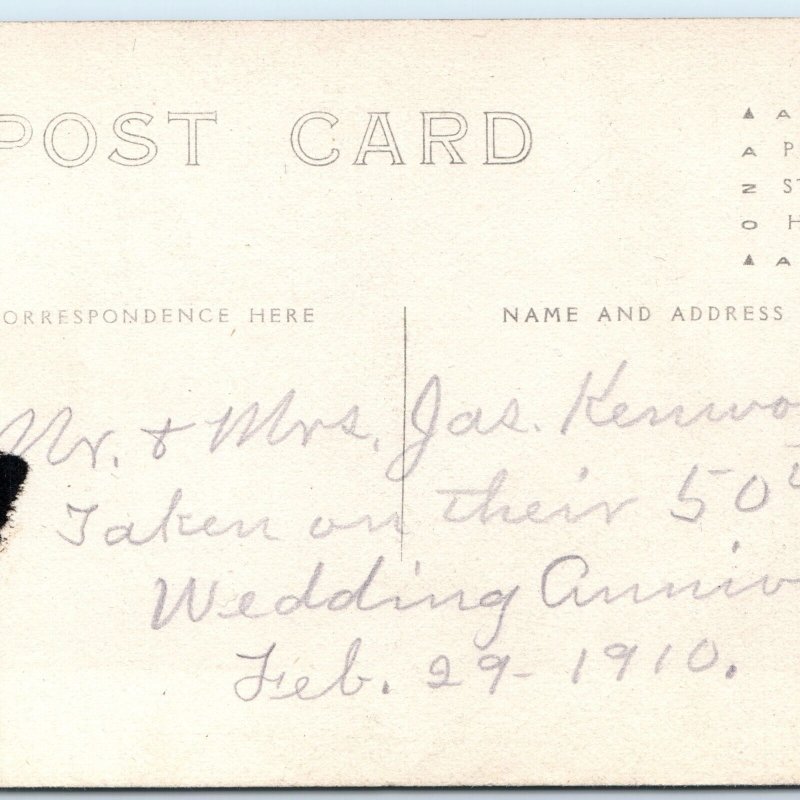 POST CARD
▲ A
A P
Z ST
O H
▲ A
ORRESPONDENCE HERE
NAME AND ADDRESS
Mr. & Mrs. Jas. Kenwo
Taken on their 50
Wedding Anniv
Feb. 29- 1910.